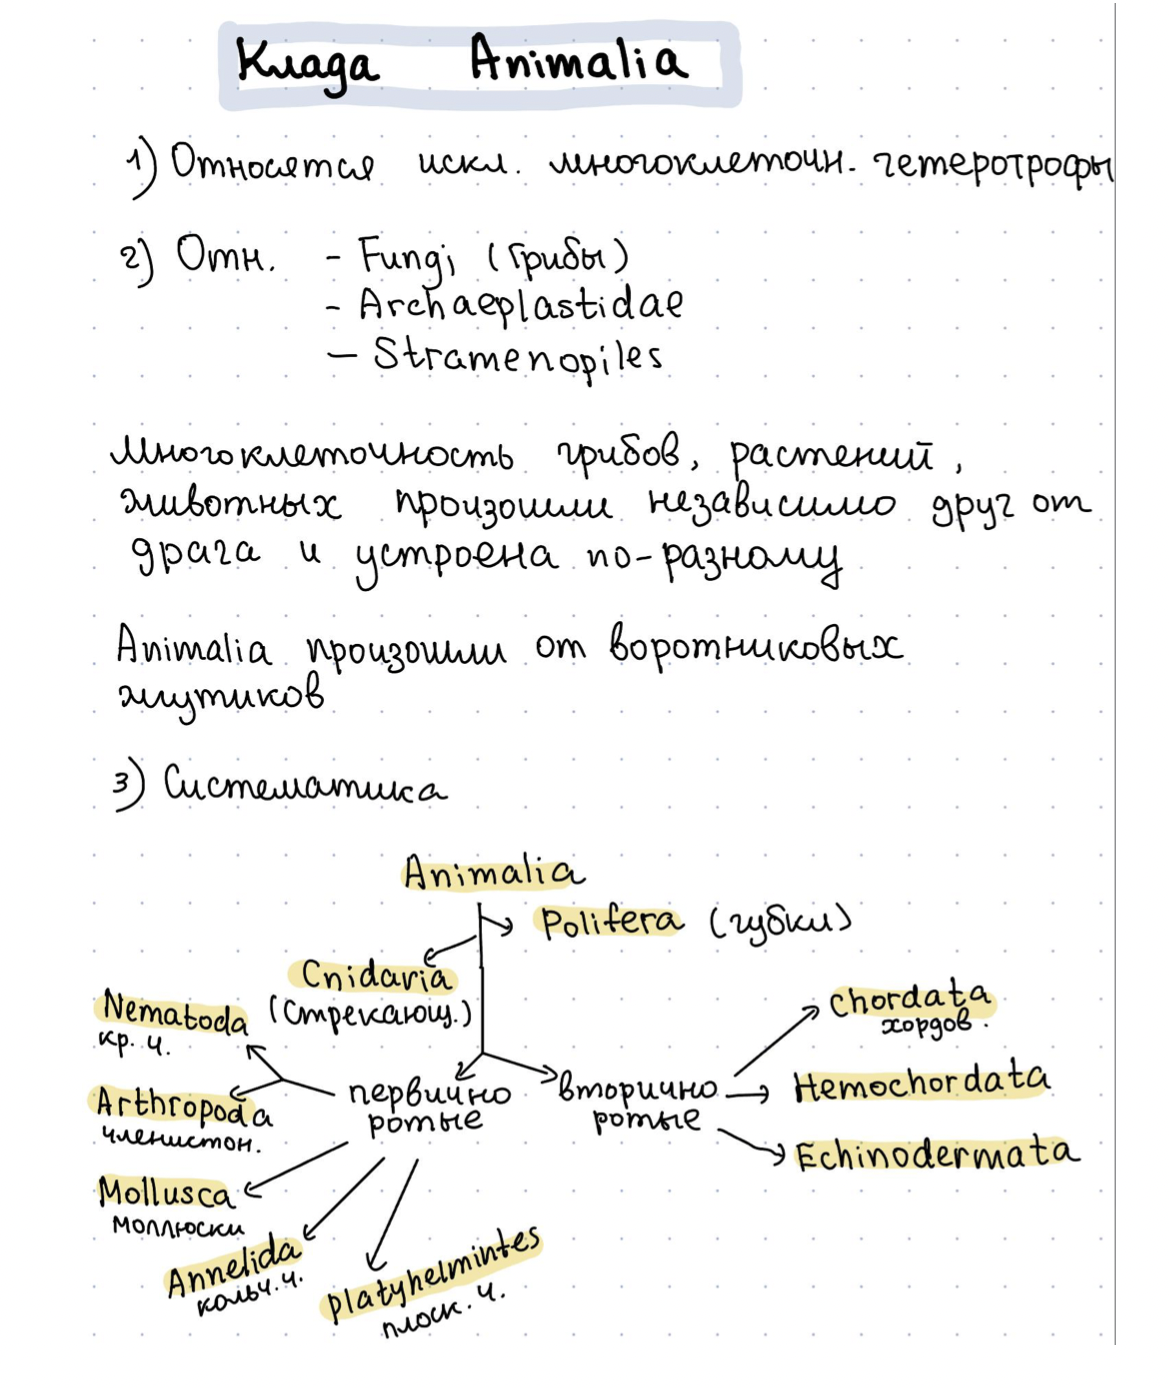 Клада Animalia
1) Относятся искл. многоклеточн. гетеротрофы
2) Отн. - Fungi (Грибы)
- Archaeplastidae
- Stramenopiles
Многоклеточность грибов, растений,
животных произошли независимо друг от
драга и устроена по-разному
Animalia произошли от воротниковых
жгутиков
3) Систематика
Animalia
Polifera (губки)
Cnidaria
(Стрекающ.)
Nematoda
кр. ч.
Arthropoda
членистон.
Mollusca
моллюски
Annelida
кольч. ч.
platyhelmintes
плоск. ч.
первично
ротые
вторично
ротые
Chordata
хордов.
Hemochordata
Echinodermata